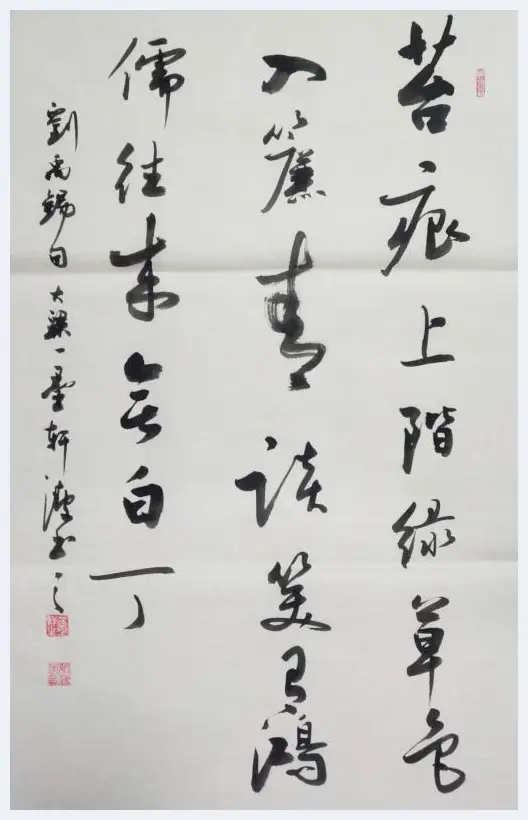 苔痕上階緑草色
入簾青談笑有鴻
儒往来無白丁
劉禹錫句大梁一墨軒